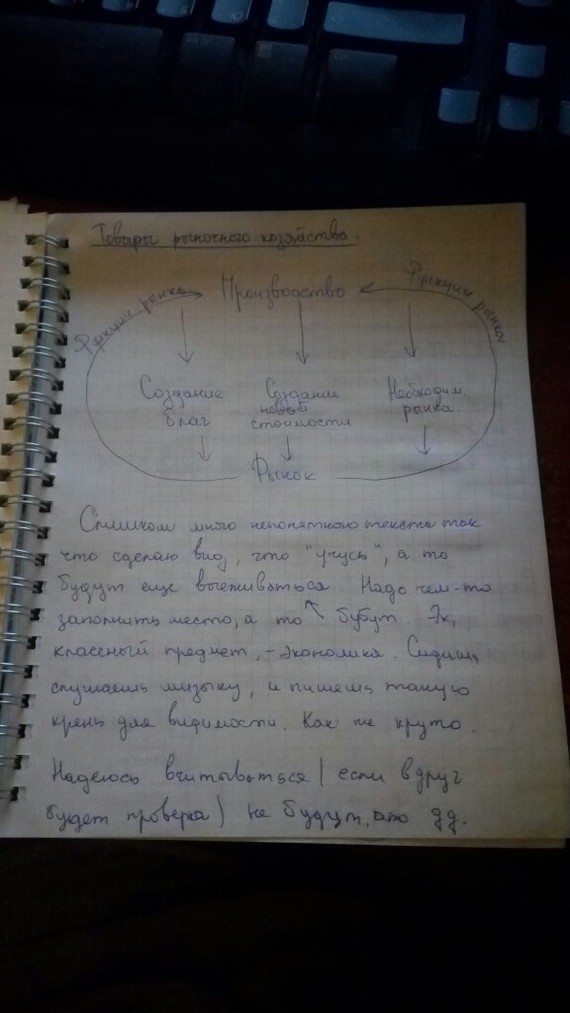 Товары рыночного хозяйства.
Функции рынка
Производство
Функции рынка
Создание благ
Создание новой стоимости
Необходим. рынка.
Рынок
Слишком много непонятного текста так
что сделаю вид, что "учусь", а то
будут еще выеживаться. Надо чем-то
заполнить место, а то бубут. Эх,
классный предмет, - экономика. Сидишь,
слушаешь музыку, и пишешь такую
хрень для видимости. Как же круто.
Надеюсь вчитываться (если вдруг
будет проверка) не будут, ато дд.